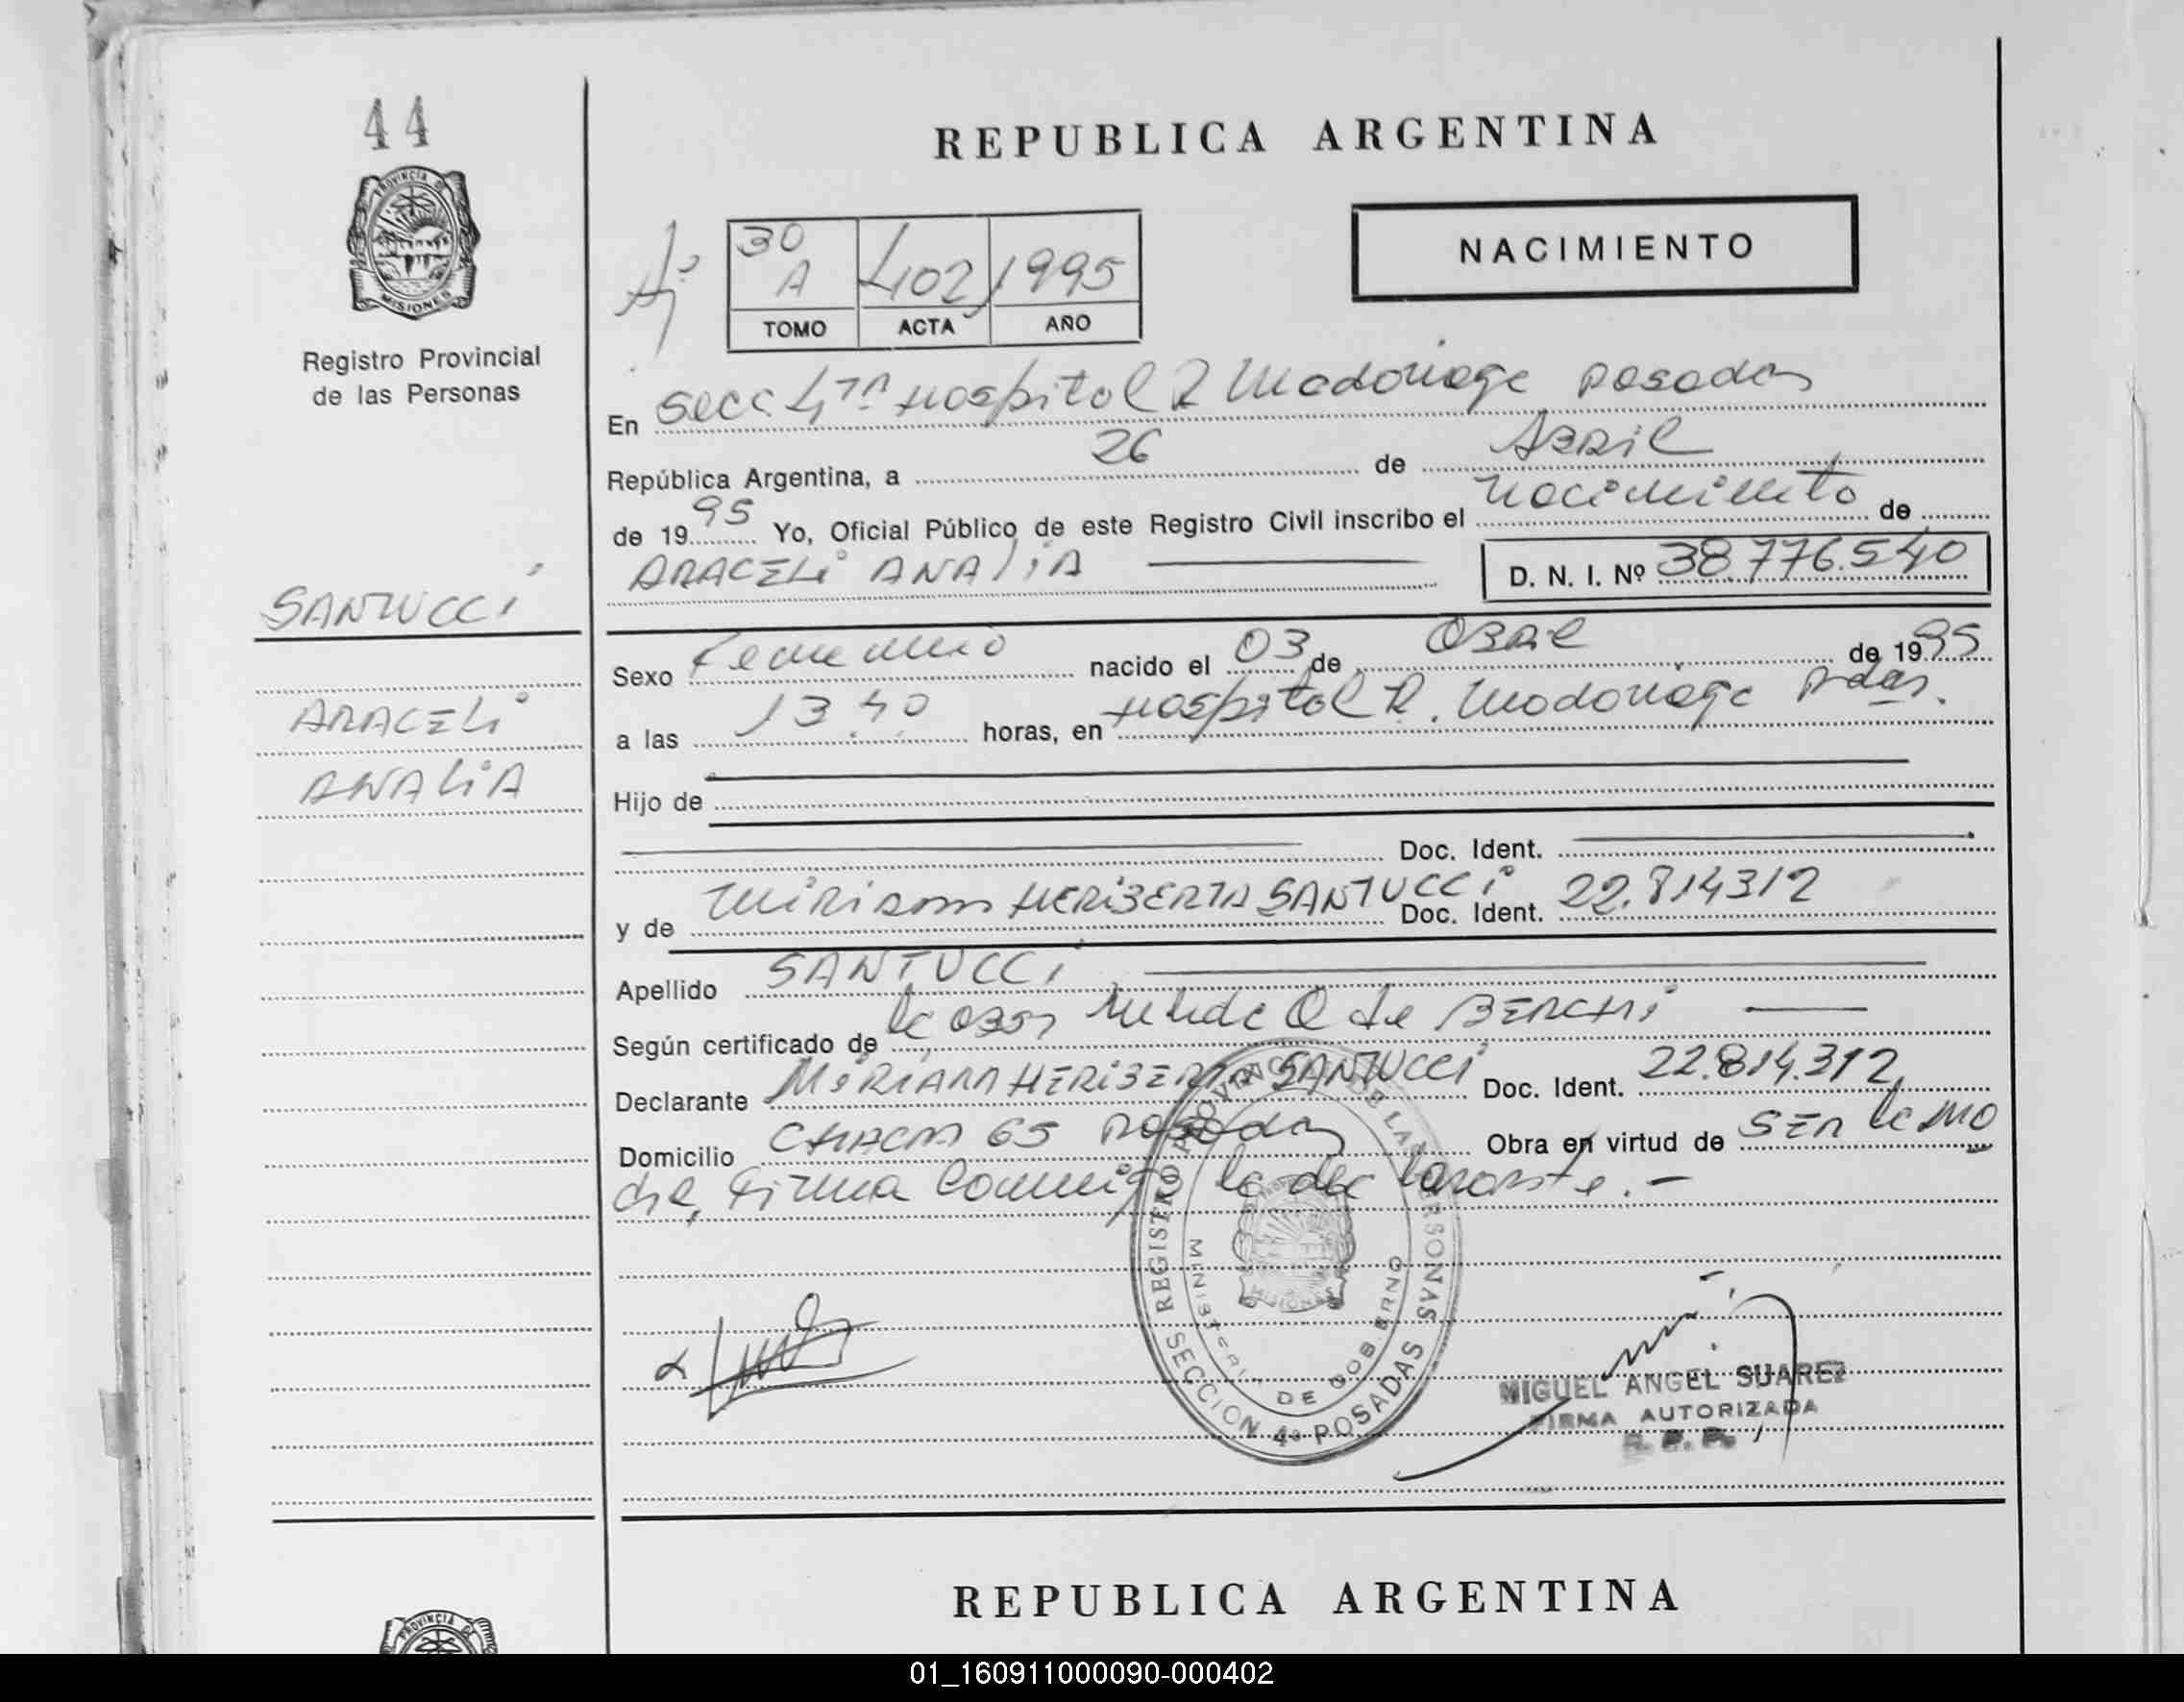 44
PROVINCIA DE
MISIONES
Registro Provincial
de las Personas
SANTUCCI
ARACELI
ANALIA
REPUBLICA ARGENTINA
30 A 402 1995
TOMO ACTA AÑO
NACIMIENTO
En Secc 4ta Hospital R Madariaga Posadas
República Argentina, a 26 de Abril
de 1995 Yo, Oficial Público de este Registro Civil inscribo el nacimiento de
ARACELI ANALIA D. N. I. Nº 38.776.540
Sexo Femenino nacido el 03 de Abril de 1995
a las 13.40 horas, en Hospital R. Madariaga Pdas.
Hijo de
Doc. Ident.
y de Miriam HERIBERTA SANTUCCI Doc. Ident. 22.814312
Apellido SANTUCCI
Según certificado de la obst de BERCHI
Declarante MIRIAM HERIBERTA SANTUCCI Doc. Ident. 22.814.312
Domicilio CHACRA 65 Posadas Obra en virtud de SER la ma
dre, Firma Conmigo la declarante.-
REGISTRO PROVINCIAL DE LAS PERSONAS
MINISTERIO DE GOBIERNO
MISIONES
SECCION 4ª POSADAS
MIGUEL ANGEL SUAREZ
FIRMA AUTORIZADA
R. P. P.
REPUBLICA ARGENTINA
PROVINCIA
01_160911000090-000402